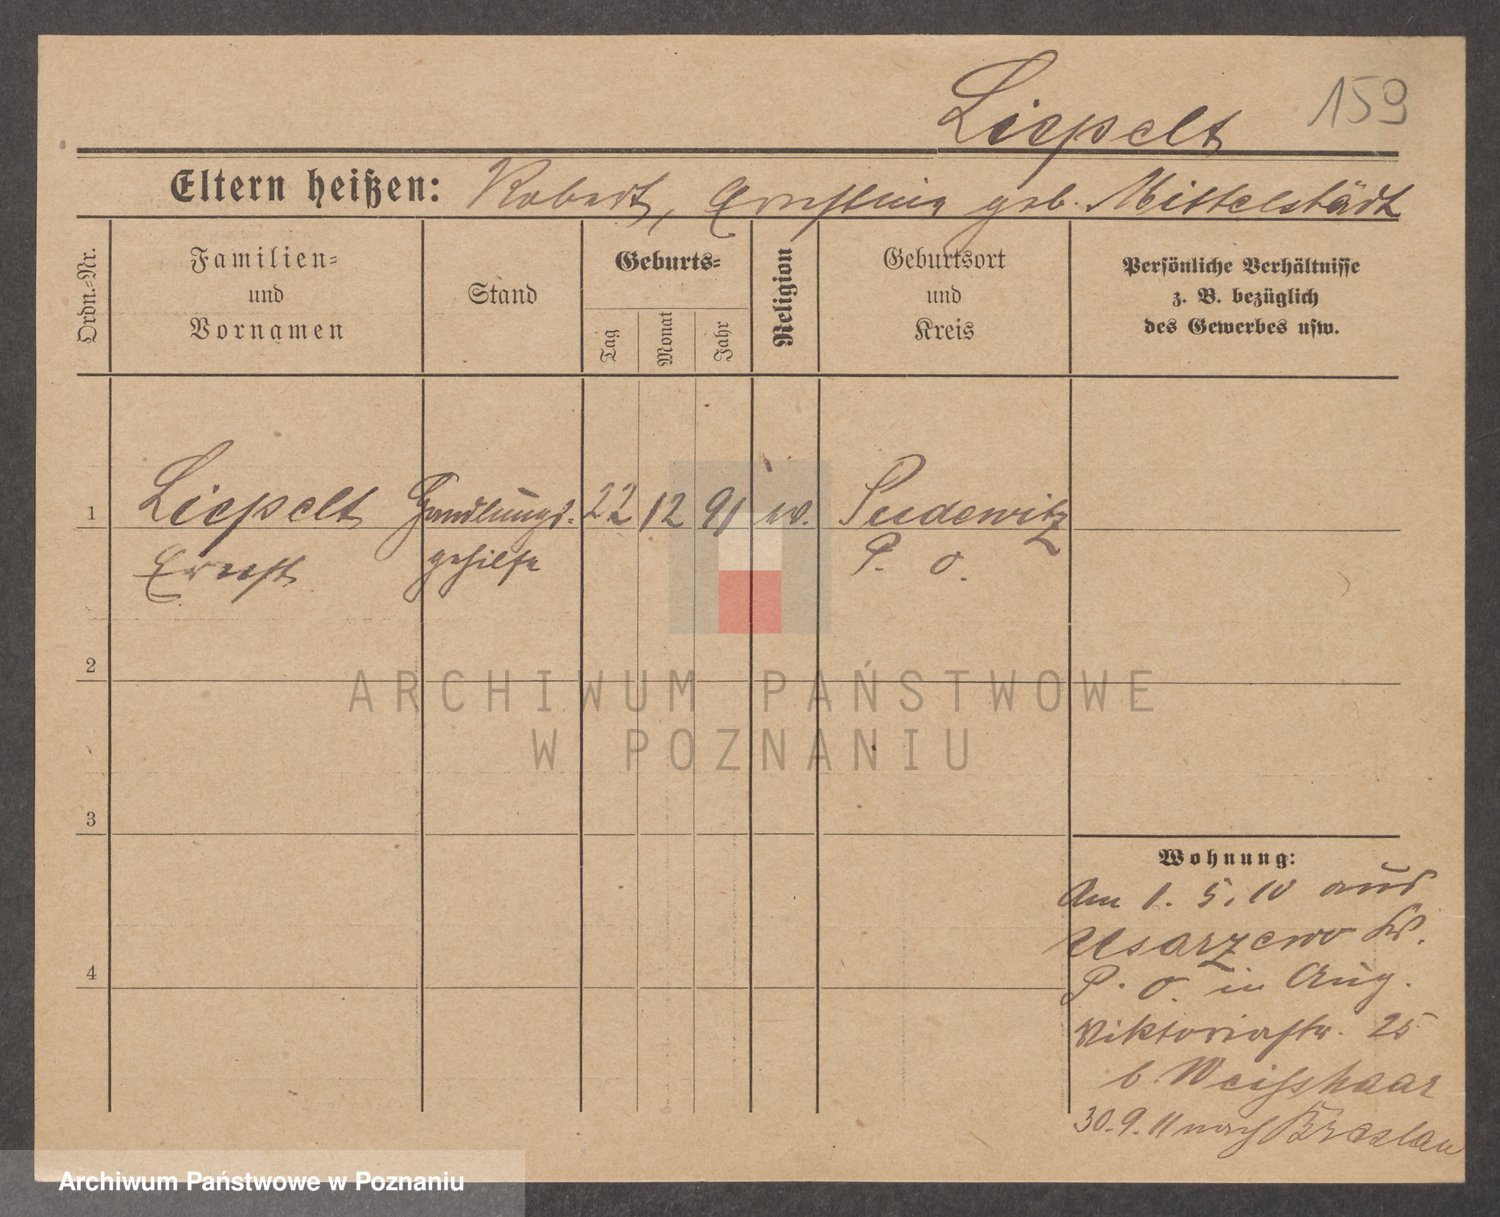 Liepelt 159
Eltern heißen: Robert, Ernstine geb. Mittelstädt
Ordn.-Nr.
Familien-
und
Vornamen
Stand
Geburts-
Tag
Monat
Jahr
Religion
Geburtsort
und
Kreis
Persönliche Verhältnisse
z. B. bezüglich
des Gewerbes usw.
1 Liepelt Handlungs- 22 12 91 Pudewitz
Ernst gehilfe P. O.
2
3
4
Wohnung:
Am 1. 5. 10 aus
Usarzewo Kr.
P. O. in Aug.
Viktoriastr. 25
b. Weisshaar
30.9.11 nach Breslau
ARCHIWUM PAŃSTWOWE
W POZNANIU
Archiwum Państwowe w Poznaniu